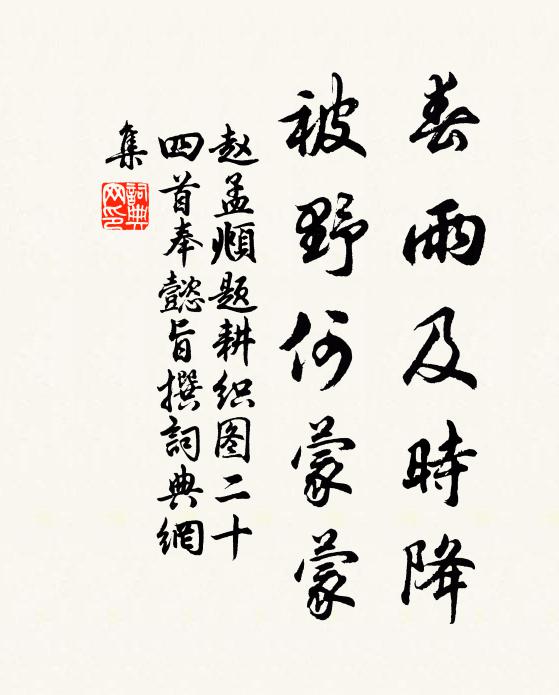 春雨及時降
被野何蒙蒙
赵孟頫题耕织图二十
四首奉懿旨撰詞典網
集
詞典
网印